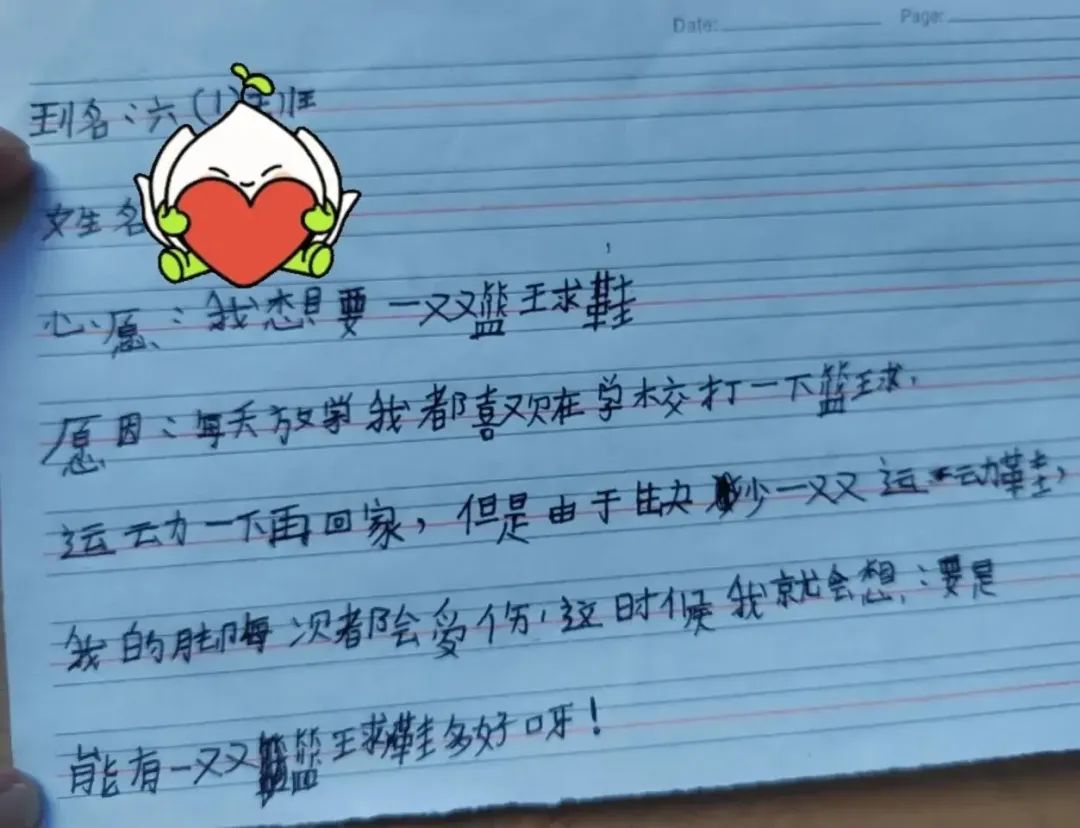 Date: Page:
班名：六（1）班
姓名
心愿：我想要一双篮球鞋
愿因：每天放学我都喜欢在学校打一下篮球，
运动一下再回家，但是由于缺少一双运动鞋，
我的脚每次都会受伤，这时候我就会想：要是
能有一双篮球鞋多好呀！